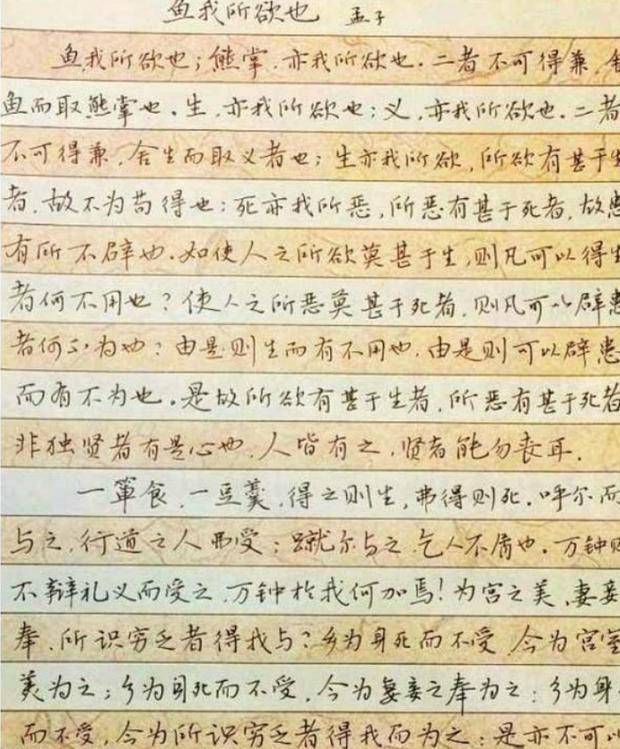 鱼我所欲也 孟子
鱼,我所欲也;熊掌,亦我所欲也.二者不可得兼,舍
鱼而取熊掌也.生,亦我所欲也;义,亦我所欲也.二者
不可得兼,舍生而取义者也;生亦我所欲,所欲有甚于生
者,故不为苟得也;死亦我所恶,所恶有甚于死者,故患
有所不辟也.如使人之所欲莫甚于生,则凡可以得生
者何不用也?使人之所恶莫甚于死者,则凡可以辟患
者何不为也?由是则生而有不用也,由是则可以辟患
而有不为也.是故所欲有甚于生者,所恶有甚于死者
非独贤者有是心也,人皆有之,贤者能勿丧耳.
一箪食,一豆羹,得之则生,弗得则死.呼尔而
与之,行道之人弗受;蹴尔与之,乞人不屑也.万钟则
不辩礼义而受之,万钟于我何加焉!为宫之美,妻妾
奉,所识穷乏者得我与?乡为身死而不受,今为宫室
美为之;乡为身死而不受,今为妻妾之奉为之;乡为身
而不受,今为所识穷乏者得我而为之:是亦不可以